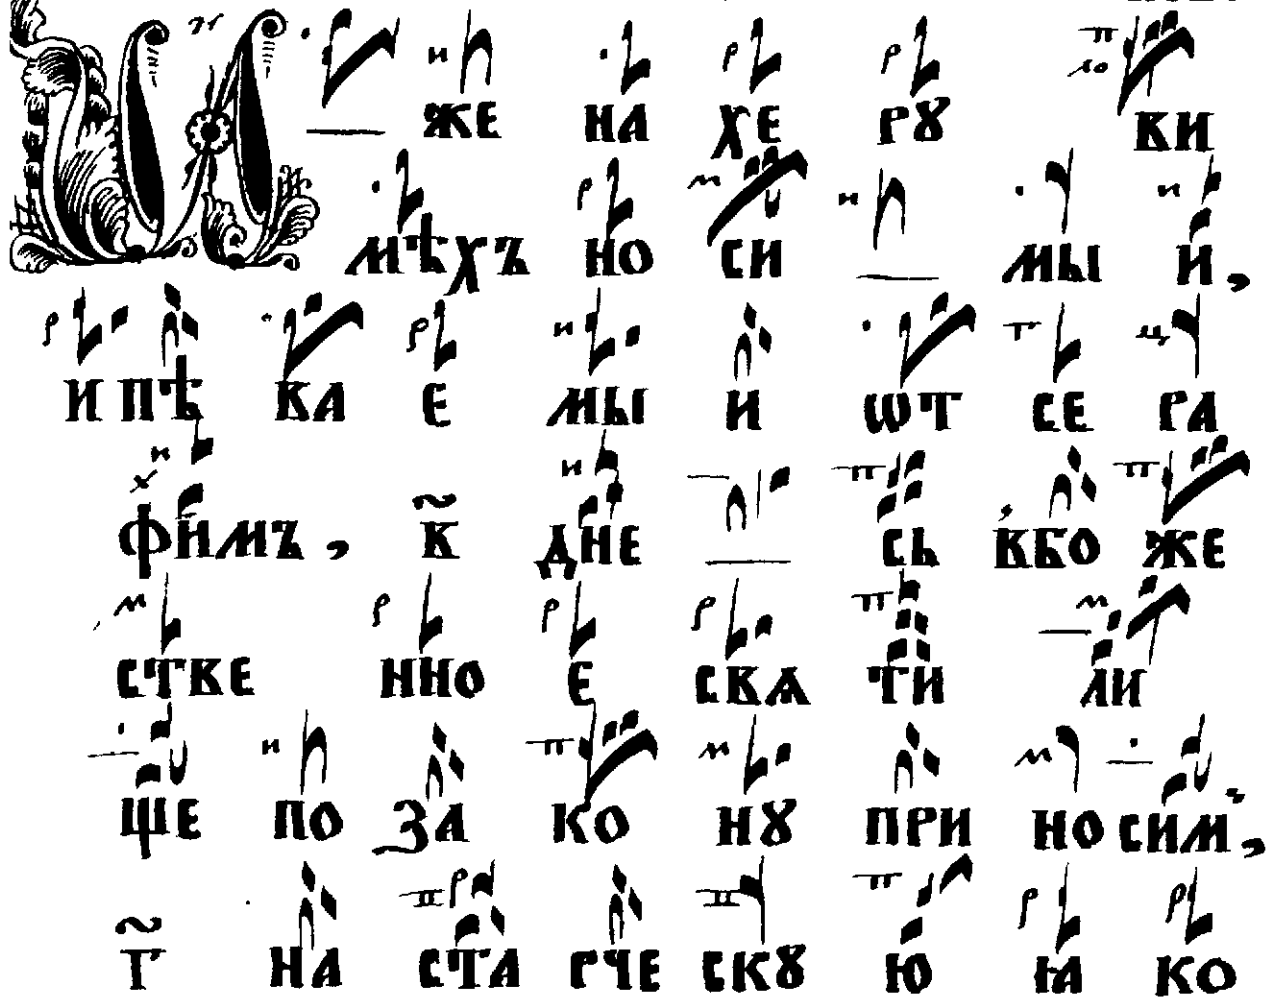 И же на хе рꙋ ви
мѣхъ но си мый,
и пѣ ва е мый ѿт се ра
фимъ, в҃ дне сь в бо же
стве нно е свѧ ти ли
ще по за ко нꙋ при но сим,
г҃ на ста рче скꙋ ю ꙗ ко